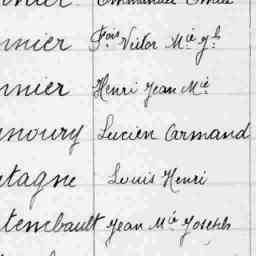 Emmanuel Emile
nnier Fois Victor Mie Jh
nnier Henri Jean Mie
noury Lucien Armand
etagne Louis Henri
tembault Jean Mie Joseph